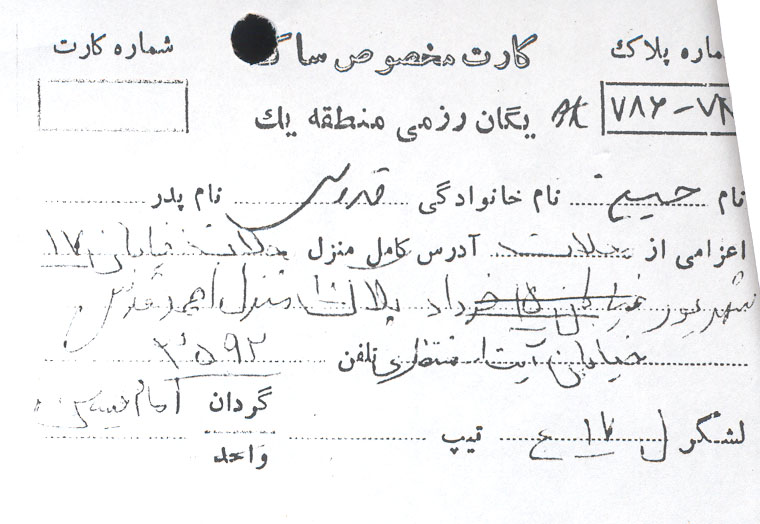 شماره پلاک کارت مخصوص ساک شماره کارت
یگان رزمی منطقه یک
نام حسین نام خانوادگی قدوسی نام پدر
اعزامی از محلات آدرس کامل منزل محلات خیابان ۱۷
شهریور خیابان ۱۵ خرداد پلاک منزل احمد
خیابان آیت ا.. منتظری تلفن ۳۵۹۲
گردان امام حسین
لشگر ل ۱۷ ع تیپ
واحد